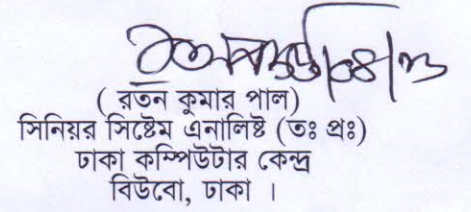 ( রতন কুমার পাল)
সিনিয়র সিষ্টেম এনালিষ্ট (তঃ প্রঃ)
ঢাকা কম্পিউটার কেন্দ্র
বিউবো, ঢাকা ।